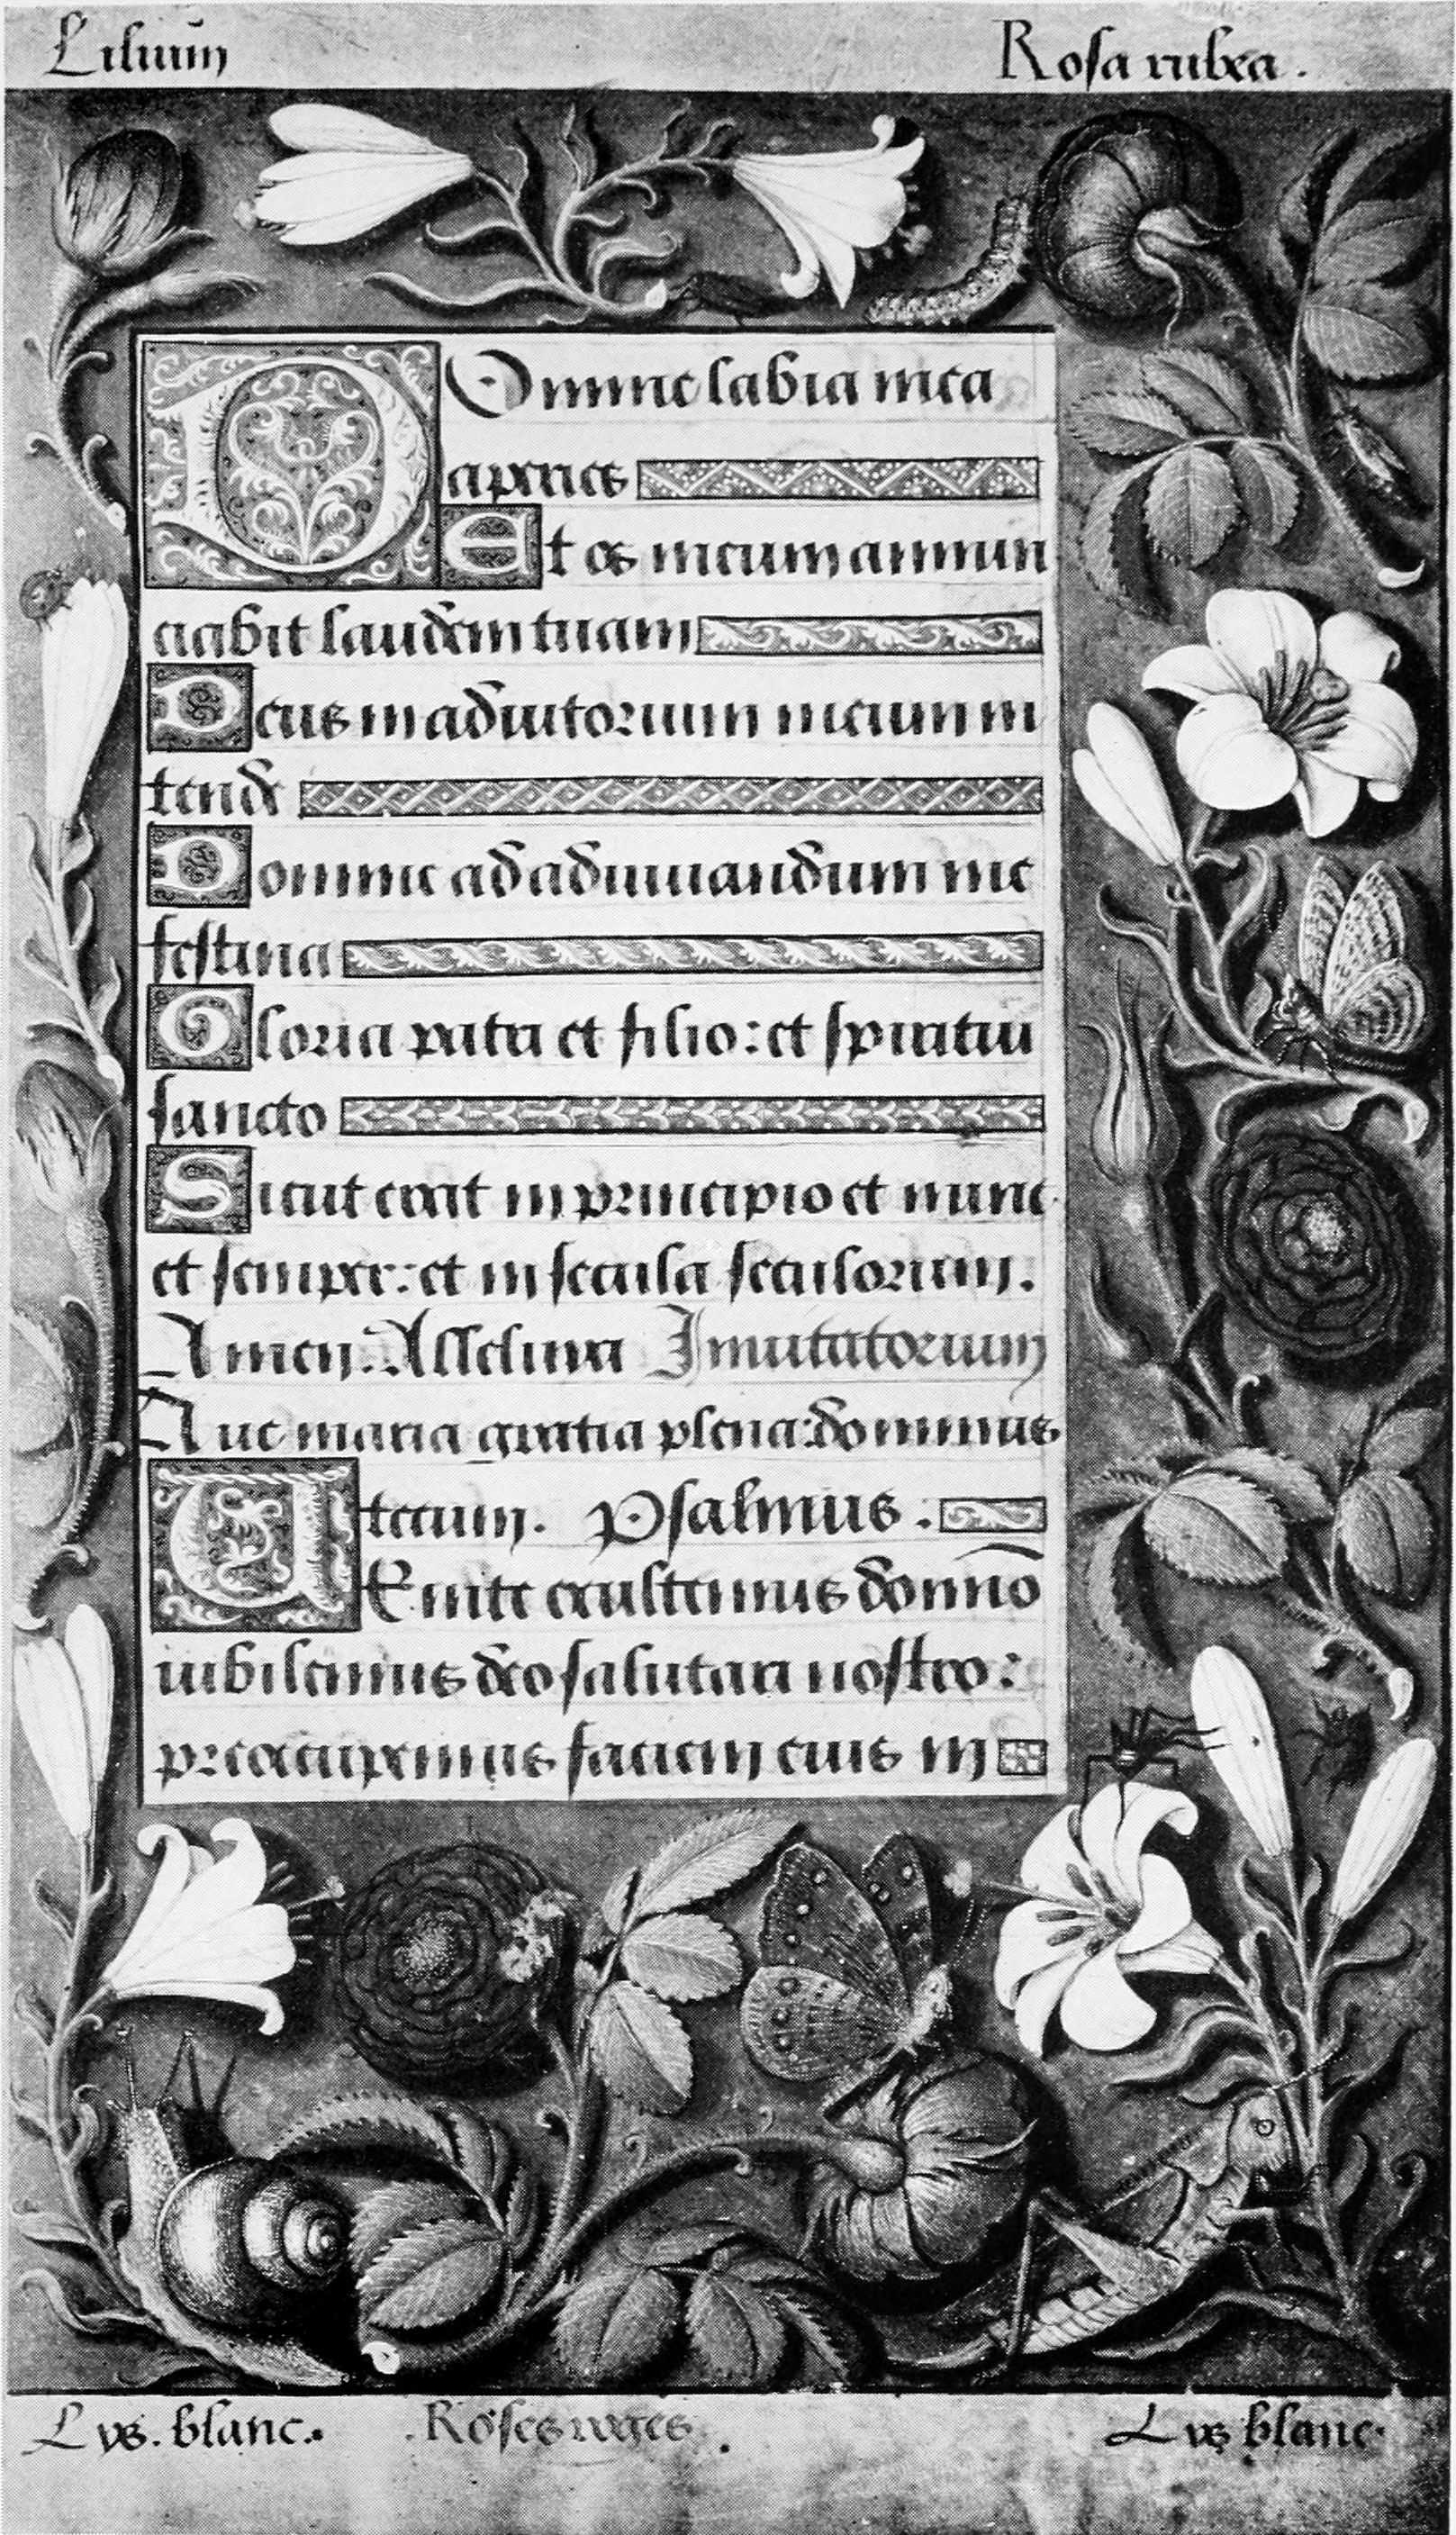 Lilium
Rosa rubea.
Domine labia mea
aperies
Et os meum annun
ciabit laudem tuam
Deus in adiutorium meum in
tende
Domine ad adiuuandum me
festina
Gloria patri et filio: et spiritui
sancto
Sicut erat in principio et nunc
et semper: et in secula seculorum.
Amen. Alleluya Inuitatorium
Aue maria gratia plena: dominus
tecum. Psalmus.
VEnite exultemus domĩo
iubilemus deo salutari nostro:
preoccupemus faciem eius in
Lys. blanc. Roses
Lys blanc.